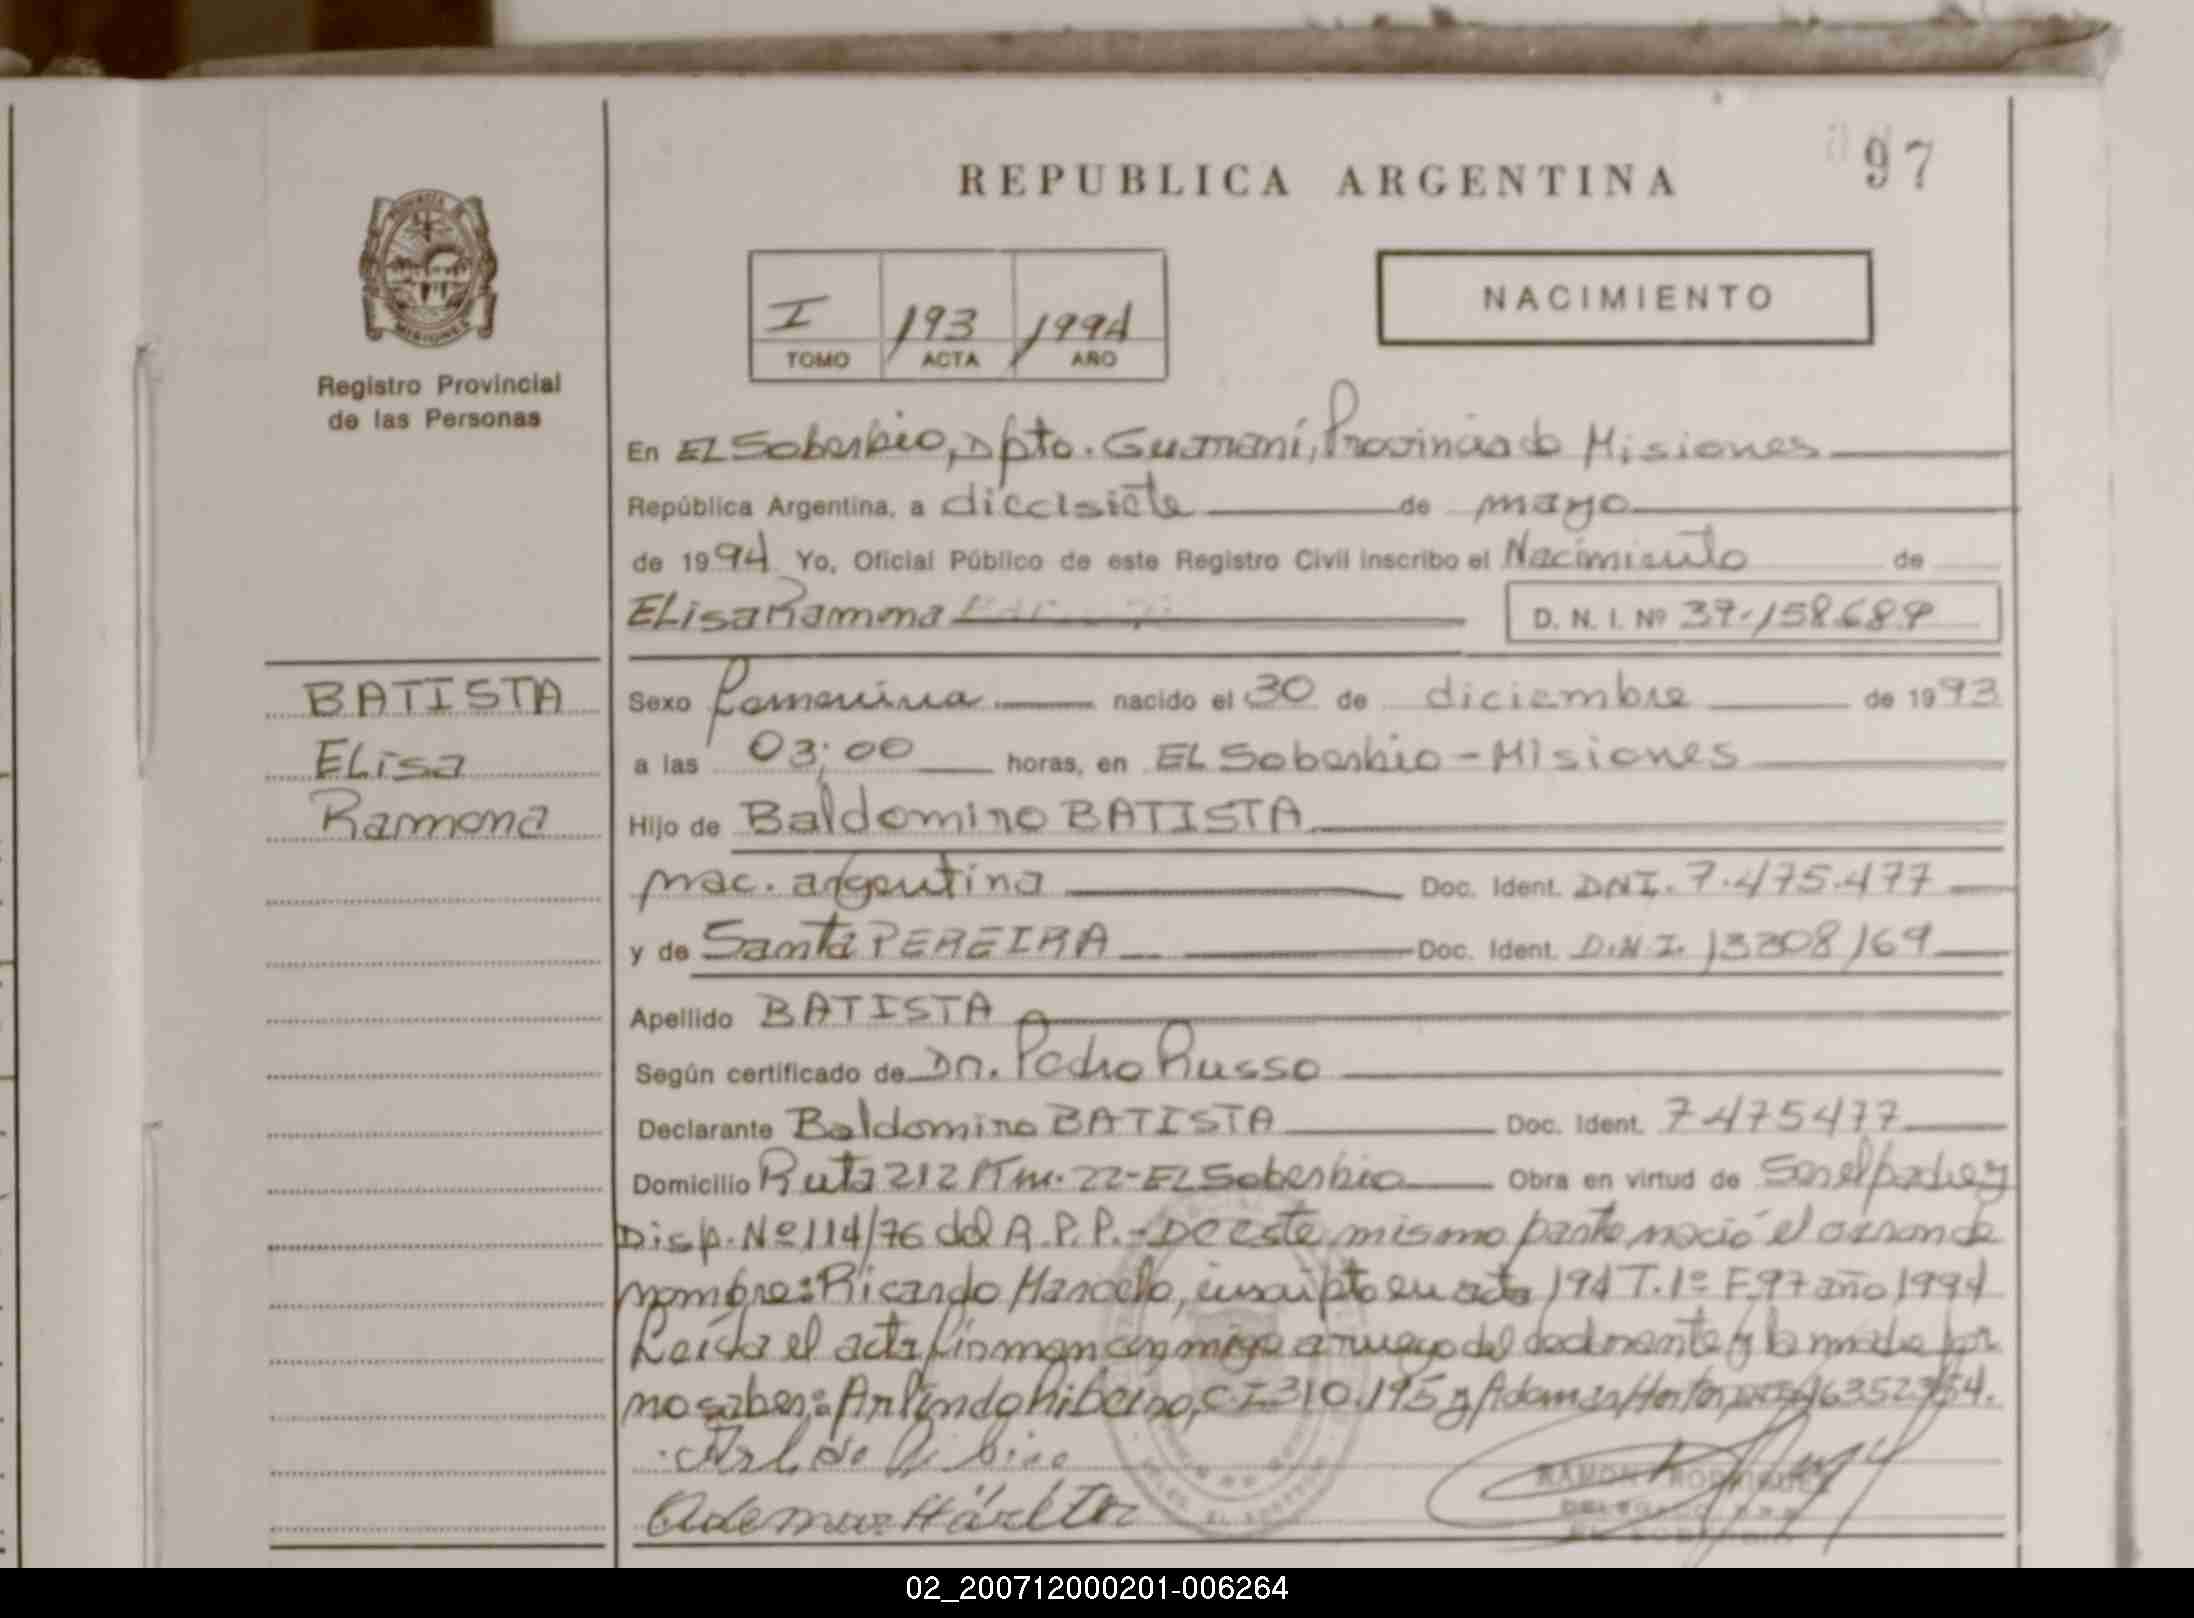 97
REPUBLICA ARGENTINA
NACIMIENTO
I 193 1994
TOMO ACTA AÑO
Registro Provincial
de las Personas
En EL Soberbio, Dpto. Guaraní, Provincia de Misiones
República Argentina, a diecisiete de mayo
de 1994 Yo, Oficial Público de este Registro Civil inscribo el Nacimiento de
ELisa Ramona D. N. I. Nº 37.158.687
BATISTA
ELisa
Ramona
Sexo femenina nacido el 30 de diciembre de 1993
a las 03:00 horas, en EL Soberbio - Misiones
Hijo de Baldomino BATISTA
nac. argentina Doc. Ident. DNI. 7.475.477
y de Santa PEREIRA Doc. Ident. D.N.I. 13308169
Apellido BATISTA
Según certificado de Dr. Pedro Russo
Declarante Baldomino BATISTA Doc. Ident. 7475477
Domicilio Ruta 212 Km. 22 - EL Soberbio Obra en virtud de Ser el padre y
Disp. Nº 114/76 del R.P.P. - De este mismo parto nació el varon de
nombre: Ricardo Marcelo, inscripto en acta 194 T. 1º F. 97 año 1994
Leída el acta firman conmigo a ruego del declarante y la madre por
no saber: Arlindo Ribeiro, C.I. 310.195 y Ademar Harter, 16352354.
Ademar Härter
RAMON RODRIGUEZ
DELEGADO
EL SOBERBIO
02_200712000201-006264